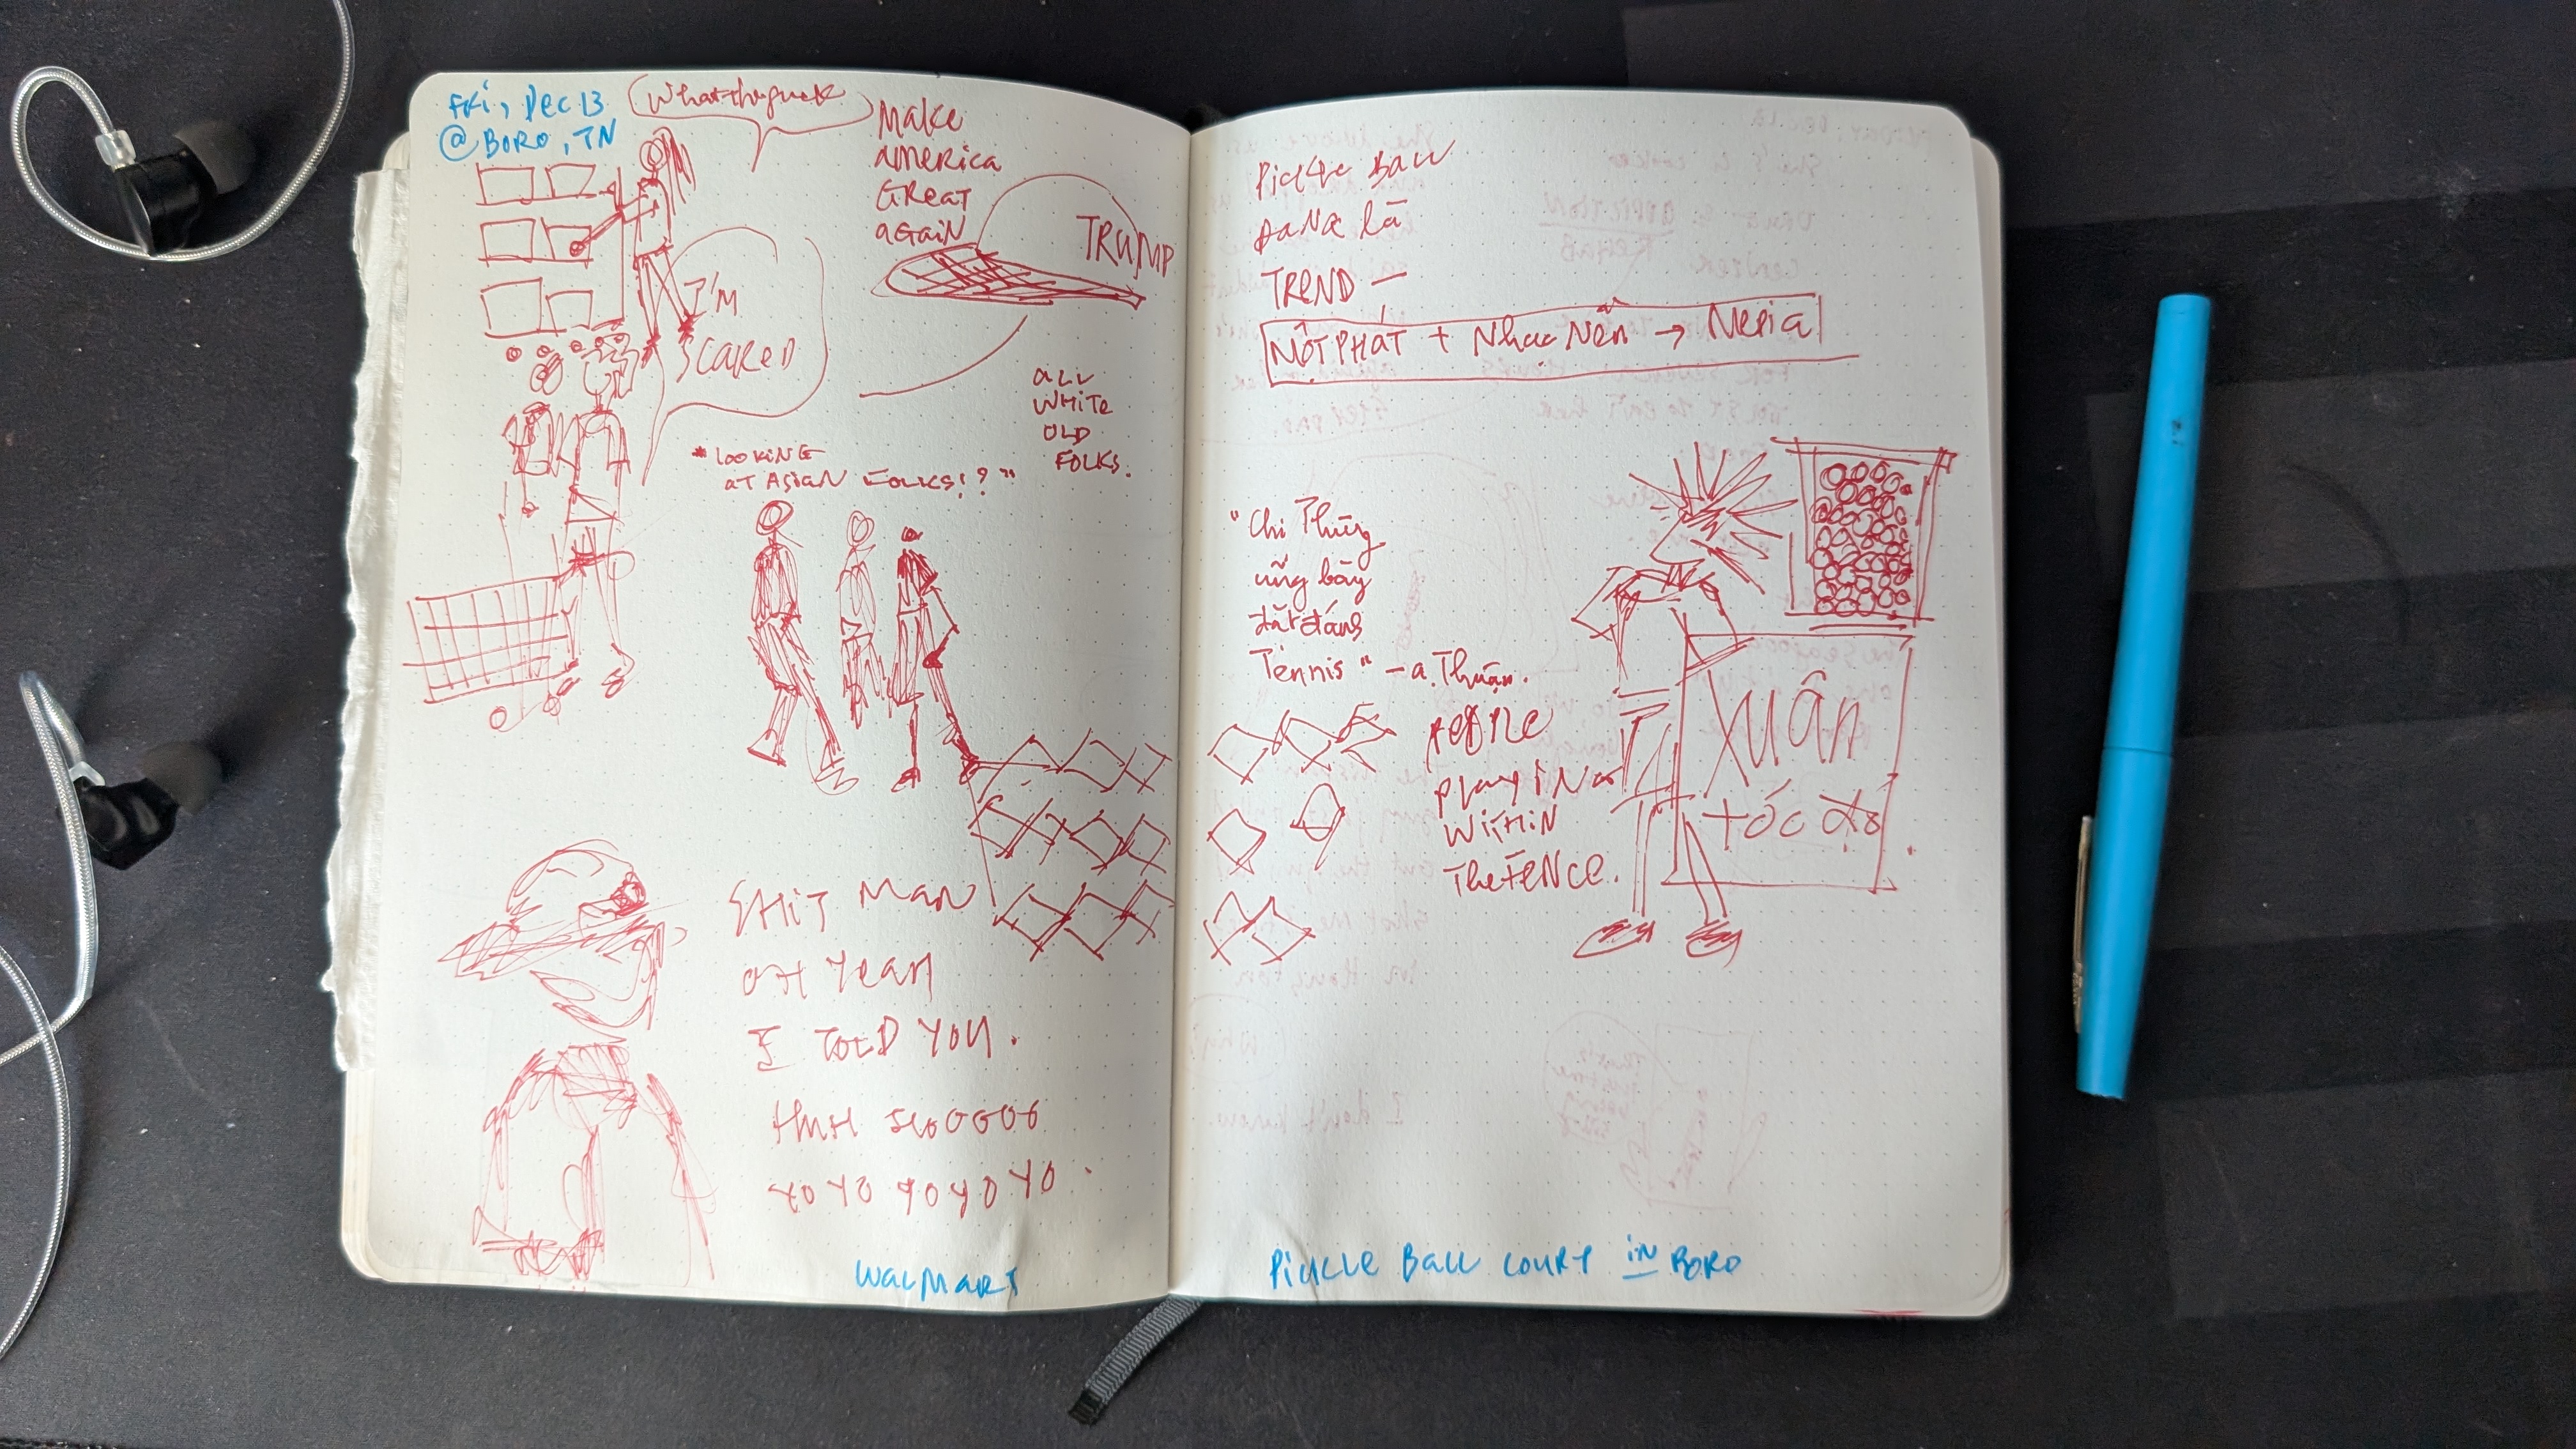 Fri, Dec 13
@BORO, TN
What the fuck
Make
america
GReaT
aGaiN
TRUMP
I'M
SCAReD
aLL
WHiTe
OLD
FOLKS.
"LOOKiNG
aT ASiaN FOLKS!?"
SHiT MaN
OH YeaH
I TOLD YOU.
HUH SUOOOOO
YO YO YO YO YO
WaLMaRT
PiCKLe BaLL
ĐaNG là
TReND —
MỘT PHÁT + Nhạc NỀN → MeDia
"Chị Thùy
cũng bày
đặt đánh
Tennis" – a. Thuận.
PeOPLe
PLayiNG
WiTHiN
The FeNCe.
XUÂN
TÓC ĐỎ
PiCKLe BaLL COURT iN BORO